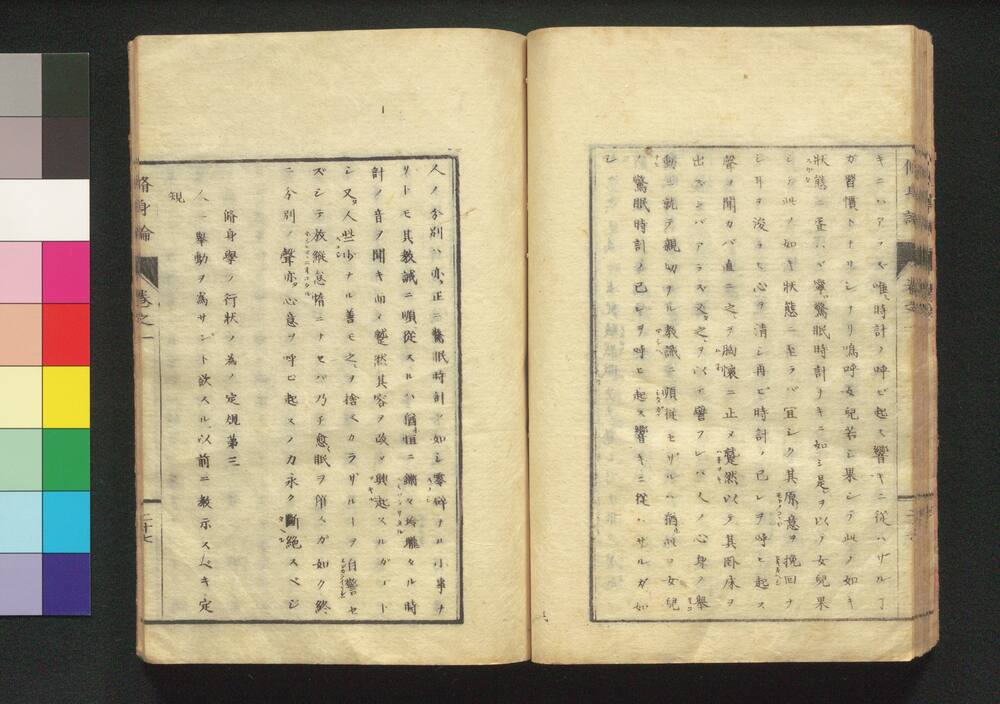 キニハアラズ唯時計ノ呼ビ起ス響キニ從ハザル丁
ガ習慣トナリシナリ嗚呼女兒若シ果シテ此ノ如キ
狀態ニ至ラバ寧驚眠時計ナキニ如シ是ヲ以テ女兒果
シテ此ノ如キ狀態ニ至ラバ宜シク其原意ヲ挽回ナ
シ耳ヲ浚ヒ心ヲ清シ再ビ時計ノ己レヲ呼ビ起ス
聲ヲ聞カバ直ニ之ヲ胸懷ニ止メ蹩然以テ其卧床ヲ
出ズンバアラズ又之ヲ以テ譬フレバ人ノ心身ノ舉
動ニ就テ親切ナル教誡ニ順從モザルハ猶此ノ女兒
ノ驚眠時計ノ己レヲ呼ビ起ス響キニ從ハザルガ如
シ
脩身論
人ノ分別ハ亦正ニ驚眠時計ノ如シ零碎ノ小事ナ
リトモ其教誡ニ順從スルハ猶恒ニ鏘々玲瓏タル時
計ノ音ヲ聞キ而メ蹩然其容ヲ改メ興起スルガート
シ又人些少ナル善モ之ヲ捨ベカラザルーヲ自警セ
ズシテ放縱怠惰ニナセバ乃チ愈眠ヲ陪スガ如ク終
ニ分別ノ聲亦心意ヲ呼ビ起スノ力永ク斷絕スベシ
脩身學ノ行狀ノ為ノ定規第三
人一舉動ヲ為サント欲スル以前ニ教示スベキ定
規
脩身論
卷之一
二十七